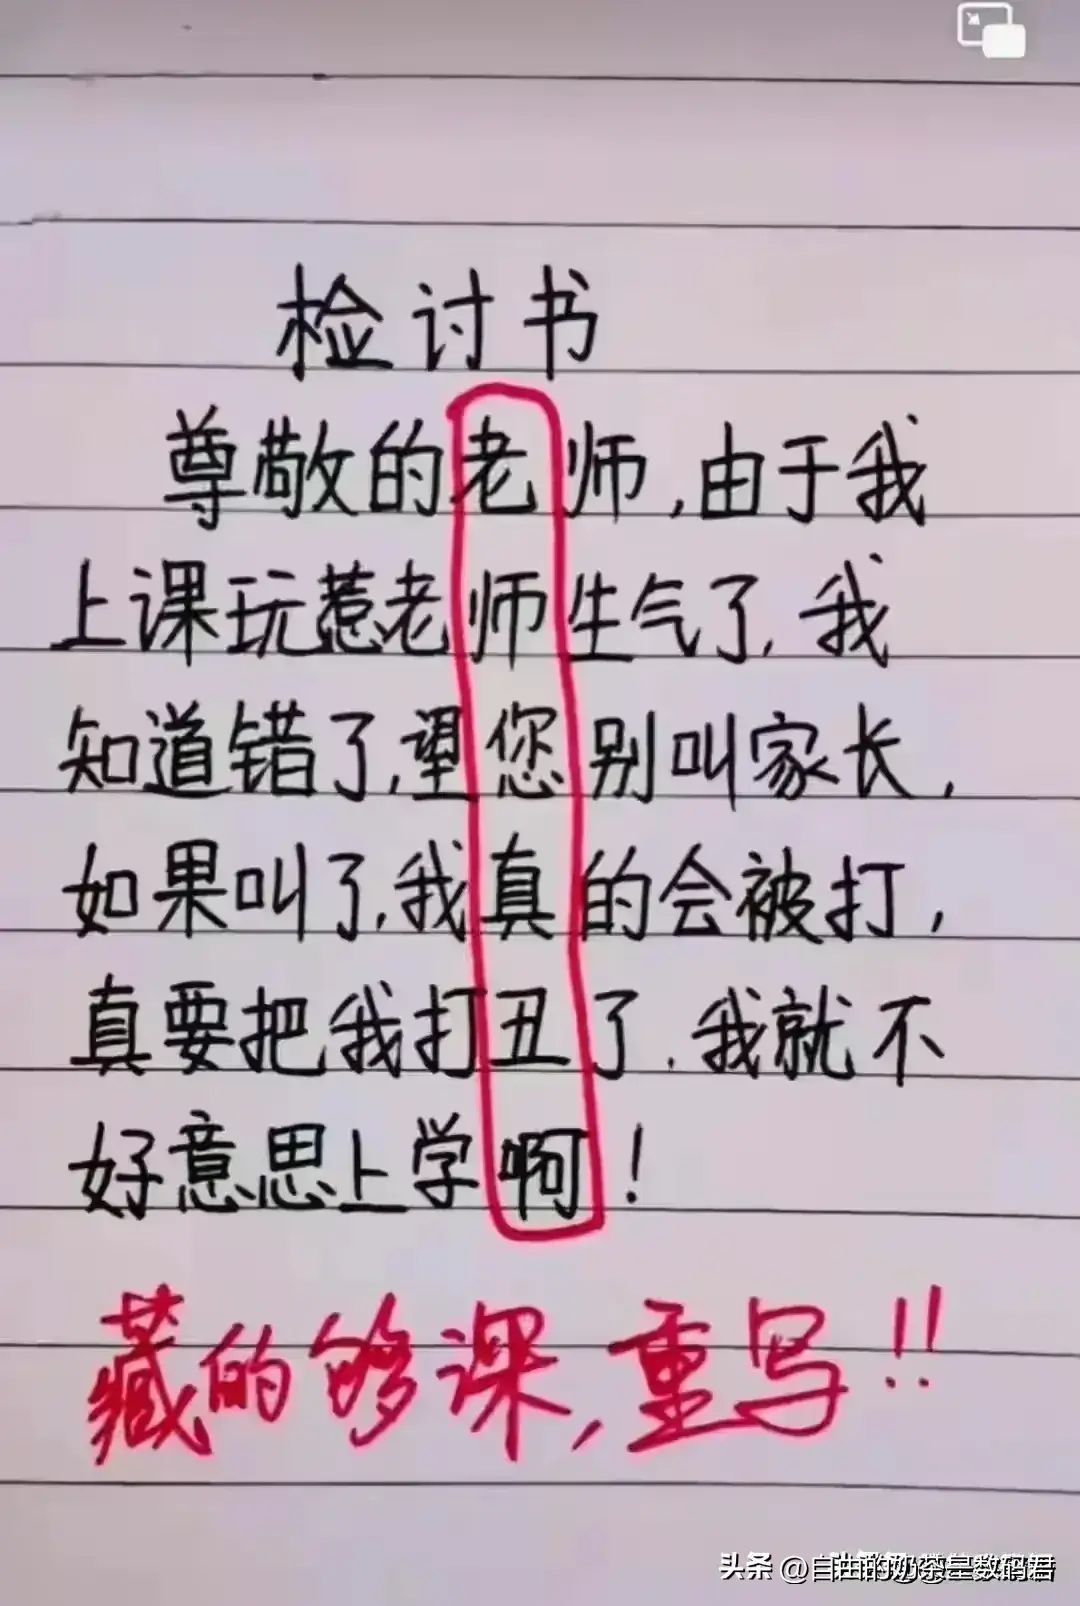 检讨书
尊敬的老师,由于我
上课玩惹老师生气了,我
知道错了,望您别叫家长,
如果叫了,我真的会被打,
真要把我打丑了,我就不
好意思上学啊!
藏的够课,重写!!
头条 @自由的奶茶星数码君